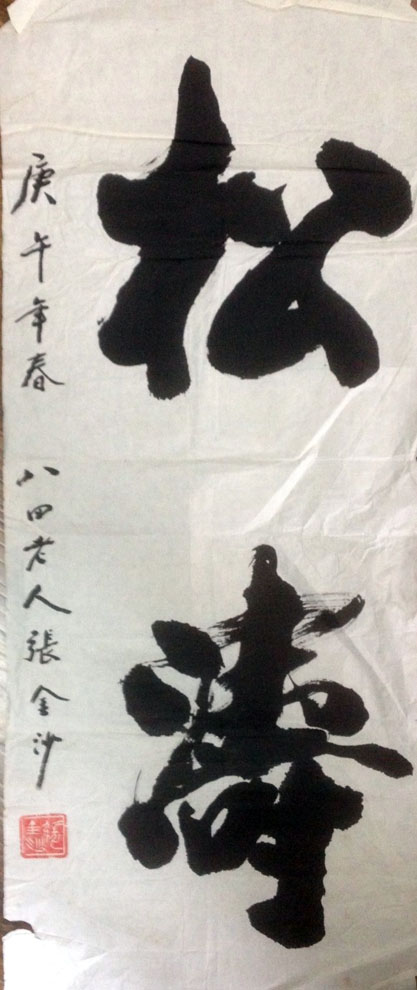 松濤
庚午年春 八四老人張金沙